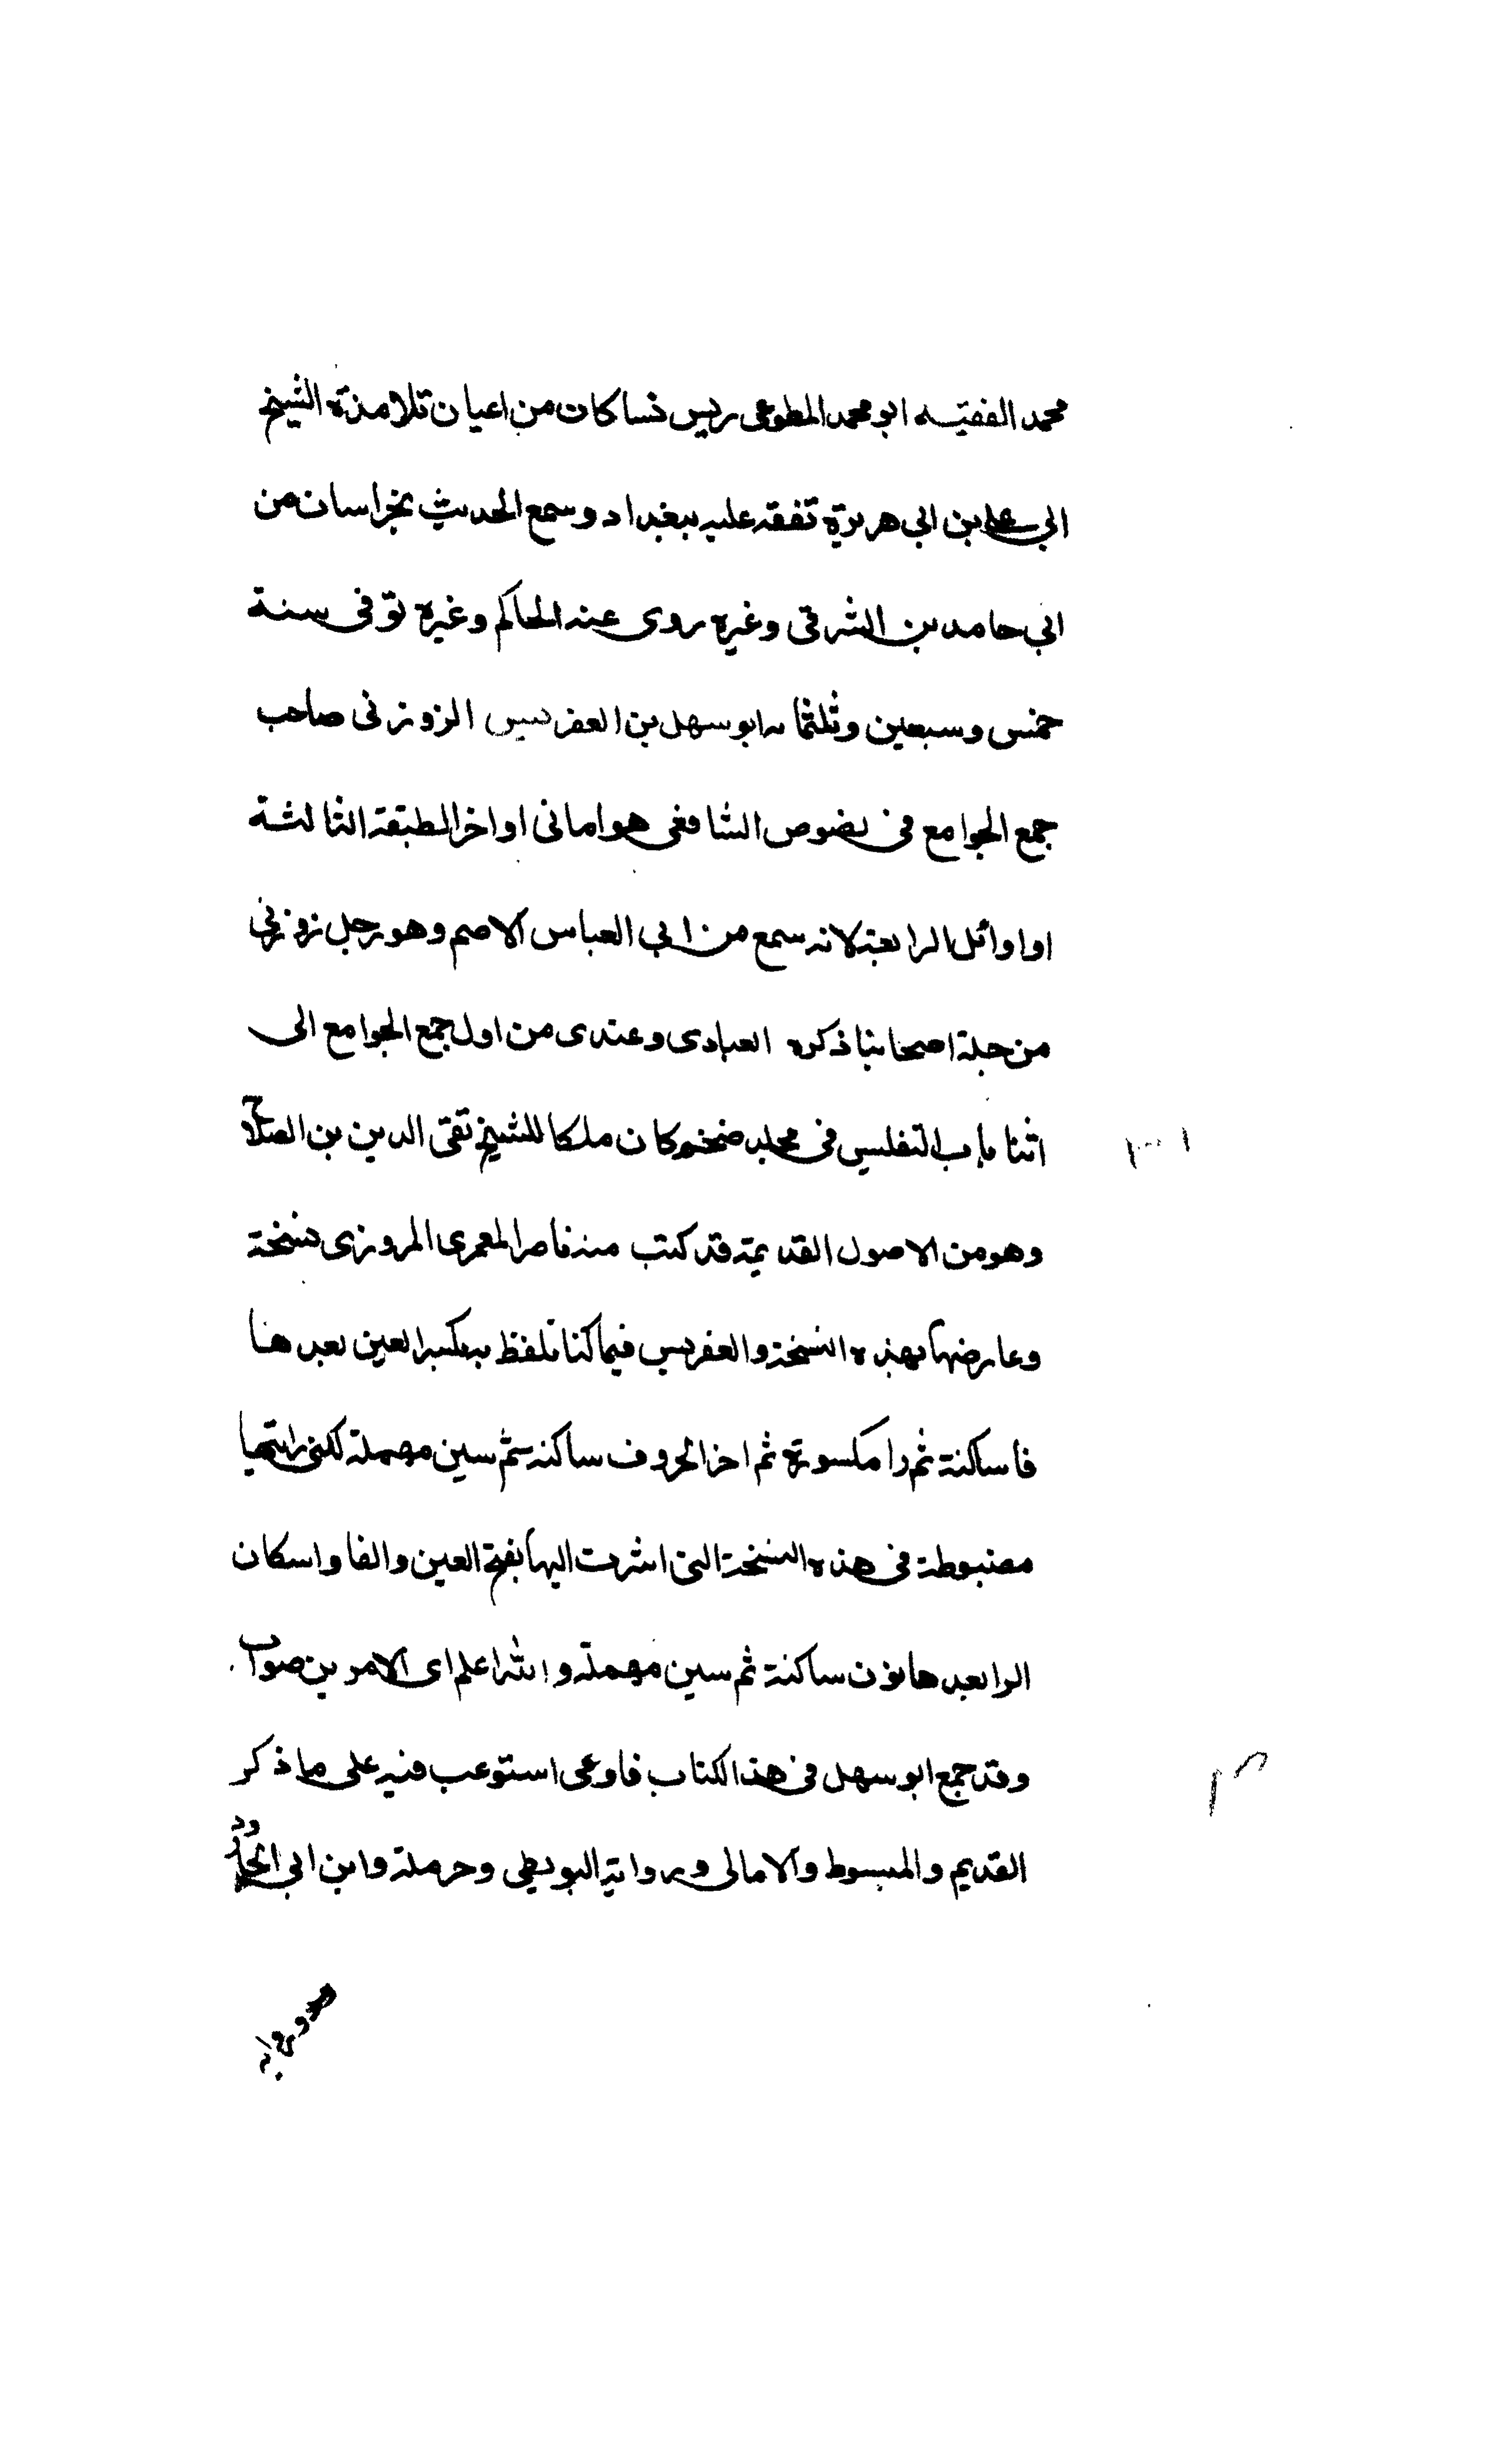 محمد الفقيه ابو محمد المطوعى رييس نسا كان من اعيان تلامذة الشيخ
ابي على بن ابي هريرة تفقه عليه ببغداد وسمع الحديث بخراسان من
ابي حامد بن الشرقى وغيره روى عنه الحاكم وغيره توفى سنة
خمس وسبعين وثلثمائه ابو سهل بن العفريس الزوزنى صاحب
جمع الجوامع فى نصوص الشافعى هو امافى اواخر الطبقة الثالثة
او اوائل الرابعة لانه سمع من ابي العباس الاصم وهو رجل زوزنى
من جلة اصحابنا ذكره العبادى وعندى من اول جمع الجوامع الى
اثنا باب التفليس فى مجلد ضخم كان ملكا للشيخ تقى الدين بن الصلاح
وهو من الاصول القديمة قد كتب منه ناصر المعمرى المروزى نسخة
وعارضها بهذه النسخة والعفريس فيما كنا نلفظ به بكسر العين بعدها
فا ساكنة ثم را مكسورة ثم اخر الحروف ساكنة ثم سين مهملة لكنى رايتها
مضبوطة فى هذه النسخة التى اشرت اليها بفتح العين والفا واسكان
الرا بعدها نون ساكنة ثم سين مهملة والله اعلم اى الامرين صواب
وقد جمع ابو سهل فى هذا الكتاب فاوعى استوعب فيه على ما ذكر
القديم والمبسوط والامالى ورواية البويطي وحرملة وابن ابي الجارود